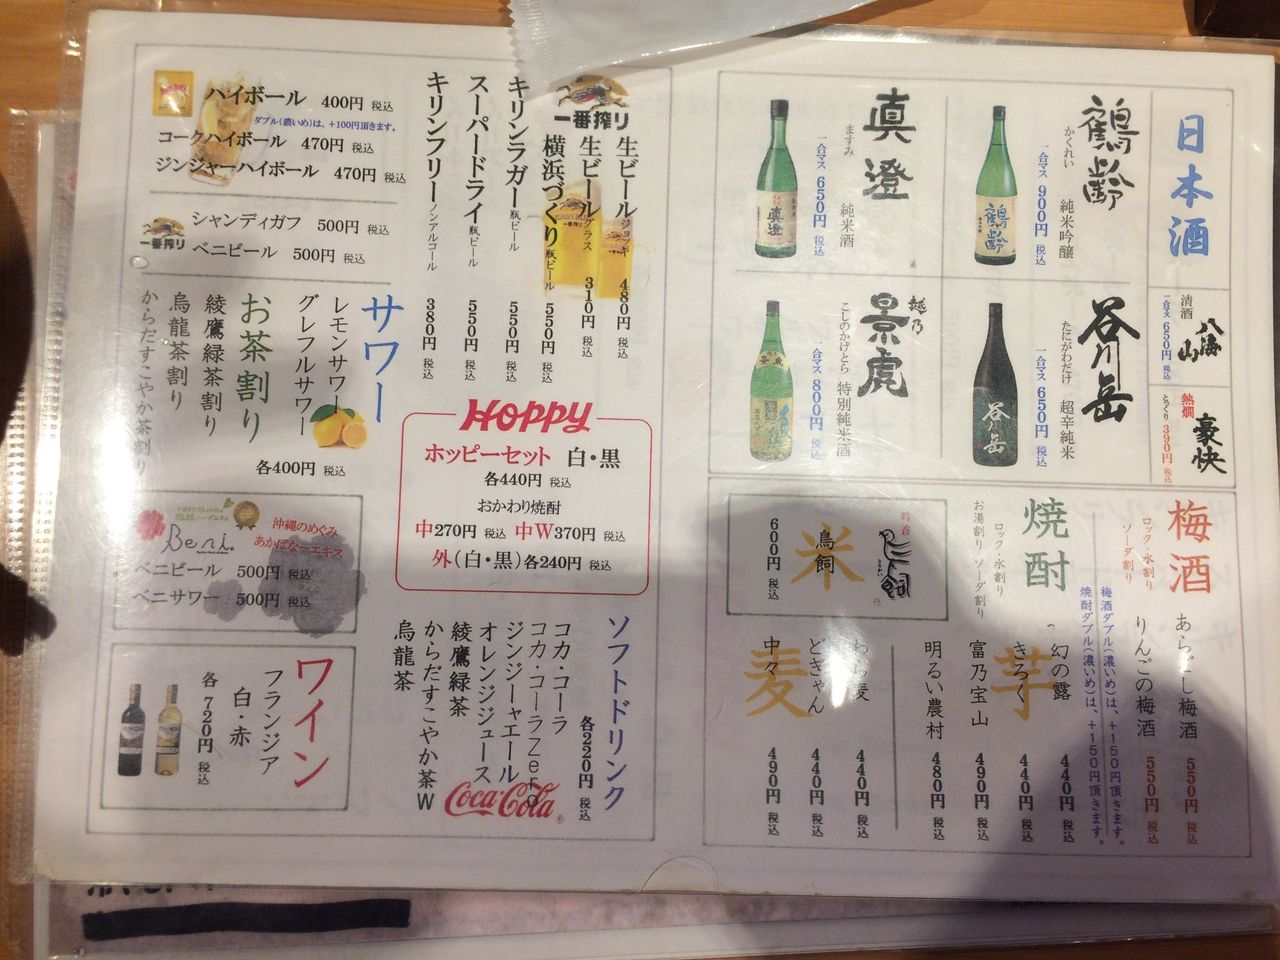 日本酒
鶴齢
かくれい
純米吟醸
一合マス 900円 税込
真澄
ますみ
純米酒
一合マス 650円 税込
清酒
八海山
一合マス 650円 税込
熱燗
豪快
とっくり 390円 税込
谷川岳
たにがわだけ
超辛純米
一合マス 650円 税込
越乃
景虎
こしのかげとら
特別純米酒
一合マス 800円 税込
梅酒
ロック・水割り
ソーダ割り
あらごし梅酒 550円 税込
りんごの梅酒 550円 税込
梅酒ダブル(濃いめ)は、+150円頂きます。
焼酎ダブル(濃いめ)は、+150円頂きます。
焼酎
ロック・水割り
お湯割り・ソーダ割り
芋
幻の露 440円 税込
きろく 440円 税込
富乃宝山 490円 税込
明るい農村 480円 税込
吟香
鳥飼
米
鳥飼
600円 税込
麦
わら麦 440円 税込
どぎゃん 440円 税込
中々 490円 税込
一番搾り
生ビール ジョッキ 480円 税込
生ビール グラス 310円 税込
横浜づくり 瓶ビール 550円 税込
キリンラガー 瓶ビール 550円 税込
スーパードライ 瓶ビール 550円 税込
キリンフリー ノンアルコール 380円 税込
ハイボール 400円 税込
ダブル(濃いめ)は、+100円頂きます。
コークハイボール 470円 税込
ジンジャーハイボール 470円 税込
一番搾り
シャンディガフ 500円 税込
ベニビール 500円 税込
サワー
レモンサワー
グレフルサワー
お茶割り
綾鷹緑茶割り
烏龍茶割り
からだすこやか茶割り
各400円 税込
HOPPY
ホッピーセット 白・黒
各440円 税込
おかわり焼酎
中270円 税込 中W370円 税込
外(白・黒)各240円 税込
Beni.
沖縄のめぐみ
あかばなーエキス
ベニビール 500円 税込
ベニサワー 500円 税込
ワイン
フランジア
白・赤
各720円 税込
ソフトドリンク
各220円 税込
コカ・コーラ
コカ・コーラZero
ジンジャエール
オレンジジュース
綾鷹緑茶
からだすこやか茶W
烏龍茶
Coca-Cola